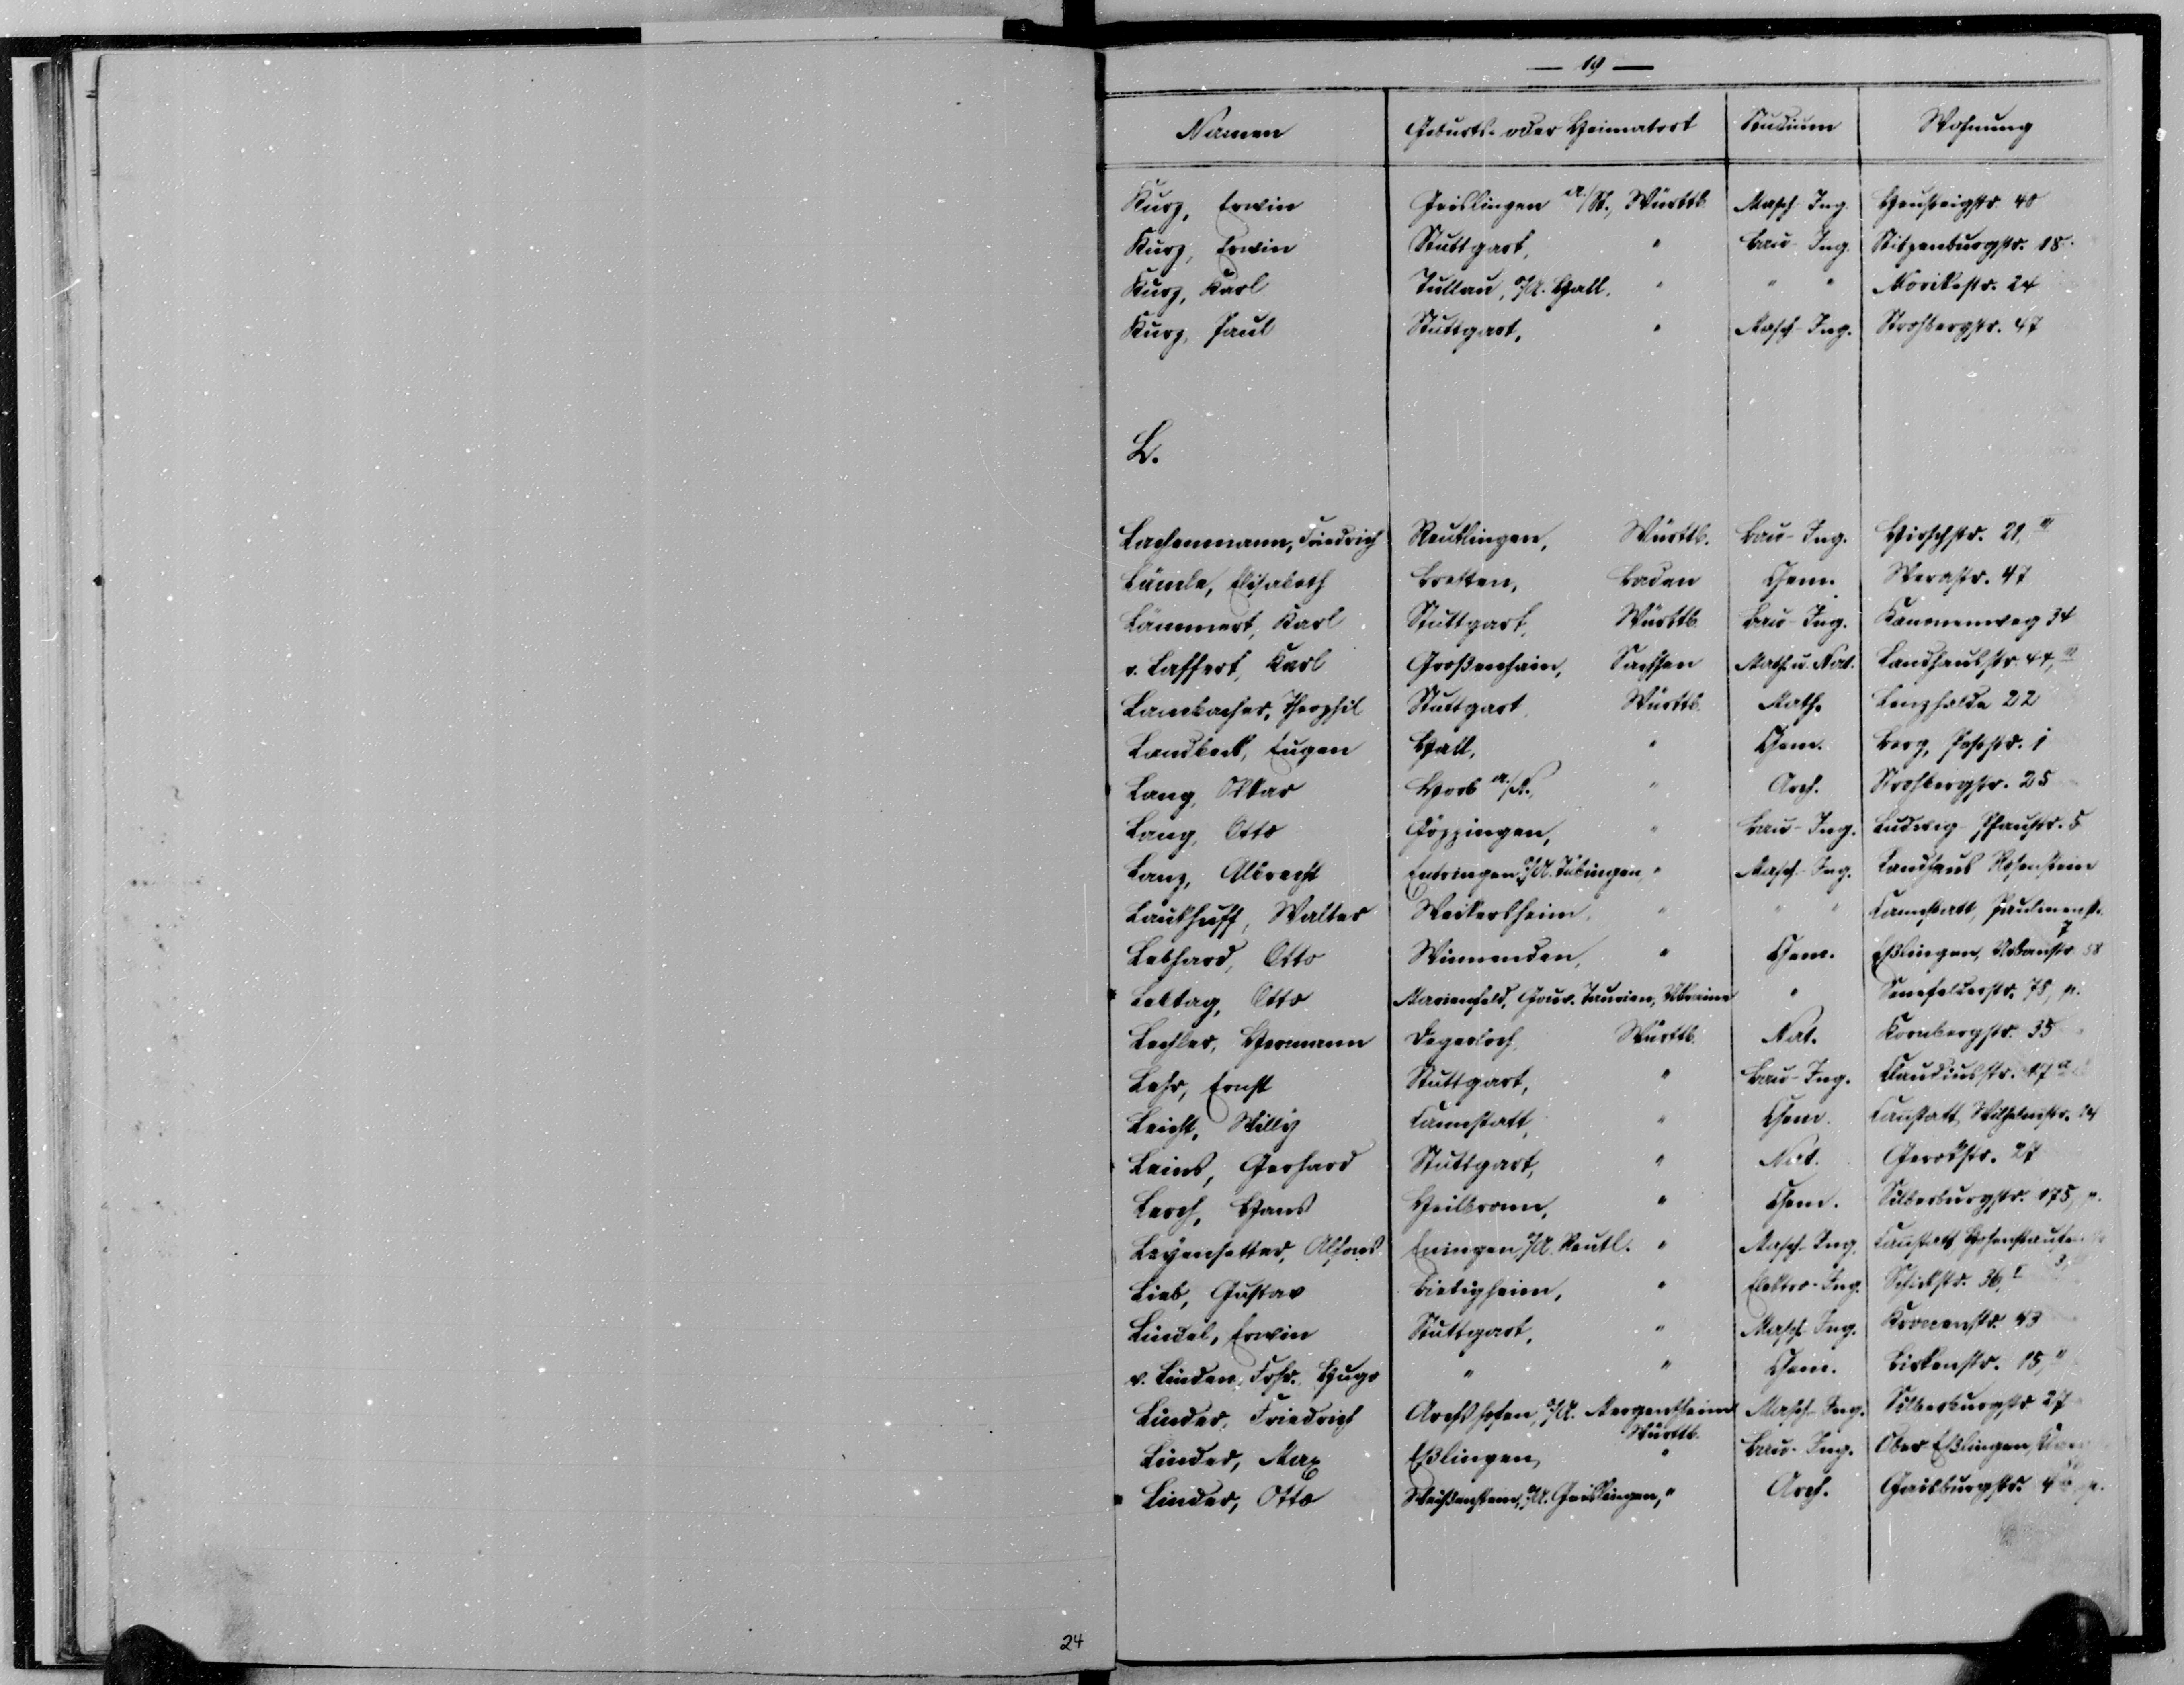 — 19 —
Namen Geburts- oder Heimatort Studium Wohnung
Kurz, Erwin Geislingen a./St., Württb. Masch-Ing. Heusteigstr. 40
Kurz, Erwin Stuttgart, " Bau-Ing. Stitzenburgstr. 18.
Kurz, Karl Tullau, O/A. Hall. " " " Mörikestr. 24
Kurz, Paul Stuttgart, " Masch-Ing. Strohbergstr. 47
L.
Lachenmann, Friedrich Reutlingen, Württb. Bau-Ing. Hirschstr. 21, III
Lämle, Elisabeth Bretten, Baden Chem. Werastr. 47
Lämmert, Karl Stuttgart, Württb. Bau-Ing. Kanonenweg 34
v. Laffert, Karl Großenhain, Sachsen Math. u. Nat. Landhausstr. 44, III
Lambacher, Theophil Stuttgart Württb. Math. Lenzhalde 22
Landbeck, Eugen Hall, " Chem. Berg, Poststr. 1
Lang, Oskar Horb a./N., " Arch. Strohbergstr. 25
Lang, Otto Göppingen, " Bau-Ing. Ludwig-Pfaustr. 5
Lanz, Albrecht Entringen O/A. Tübingen, " Masch-Ing. Landhaus Rosenstein
Laukhuff, Walter Weikersheim, " " " Cannstatt, Paulinenstr. 7
Lebhard, Otto Winnenden, " Chem. Eßlingen, Urbanstr. 58
Lebtag, Otto Marienfeld, Gouv. Taurien, Ukraine " Senefelderstr. 75, p.
Lechler, Hermann Degerloch, Württb. Nat. Kornbergstr. 35
Lehr, Ernst Stuttgart, " Bau-Ing. Claudiusstr. 17a
Leicht, Willy Cannstatt, " Chem. Canstatt, Wilhelmstr. 14
Leins, Gerhard Stuttgart, " Nat. Gerokstr. 27
Lerch, Hans Heilbronn, " Chem. Silberburgstr. 175, p.
Leyensetter, Alfons Eningen O/A. Reutl. " Masch-Ing. Canstatt, Hohenstaufen 3
Lieb, Gustav Bietigheim, " Elektro-Ing. Schickstr. 36, I
Lindel, Erwin Stuttgart, " Masch-Ing. Kronenstr. 43
v. Linden, Frhr. Hugo " " Chem. Birkenstr. 15, II
Linder, Friedrich Archshofen, O/A. Mergentheim Württb. Masch-Ing. Silberburgstr. 27
Linder, Max Eßlingen, " Bau-Ing. Ober-Eßlingen,
Linder, Otto Weißenstein, O/A. Geislingen, " Arch. Gaisburgstr. p.
24